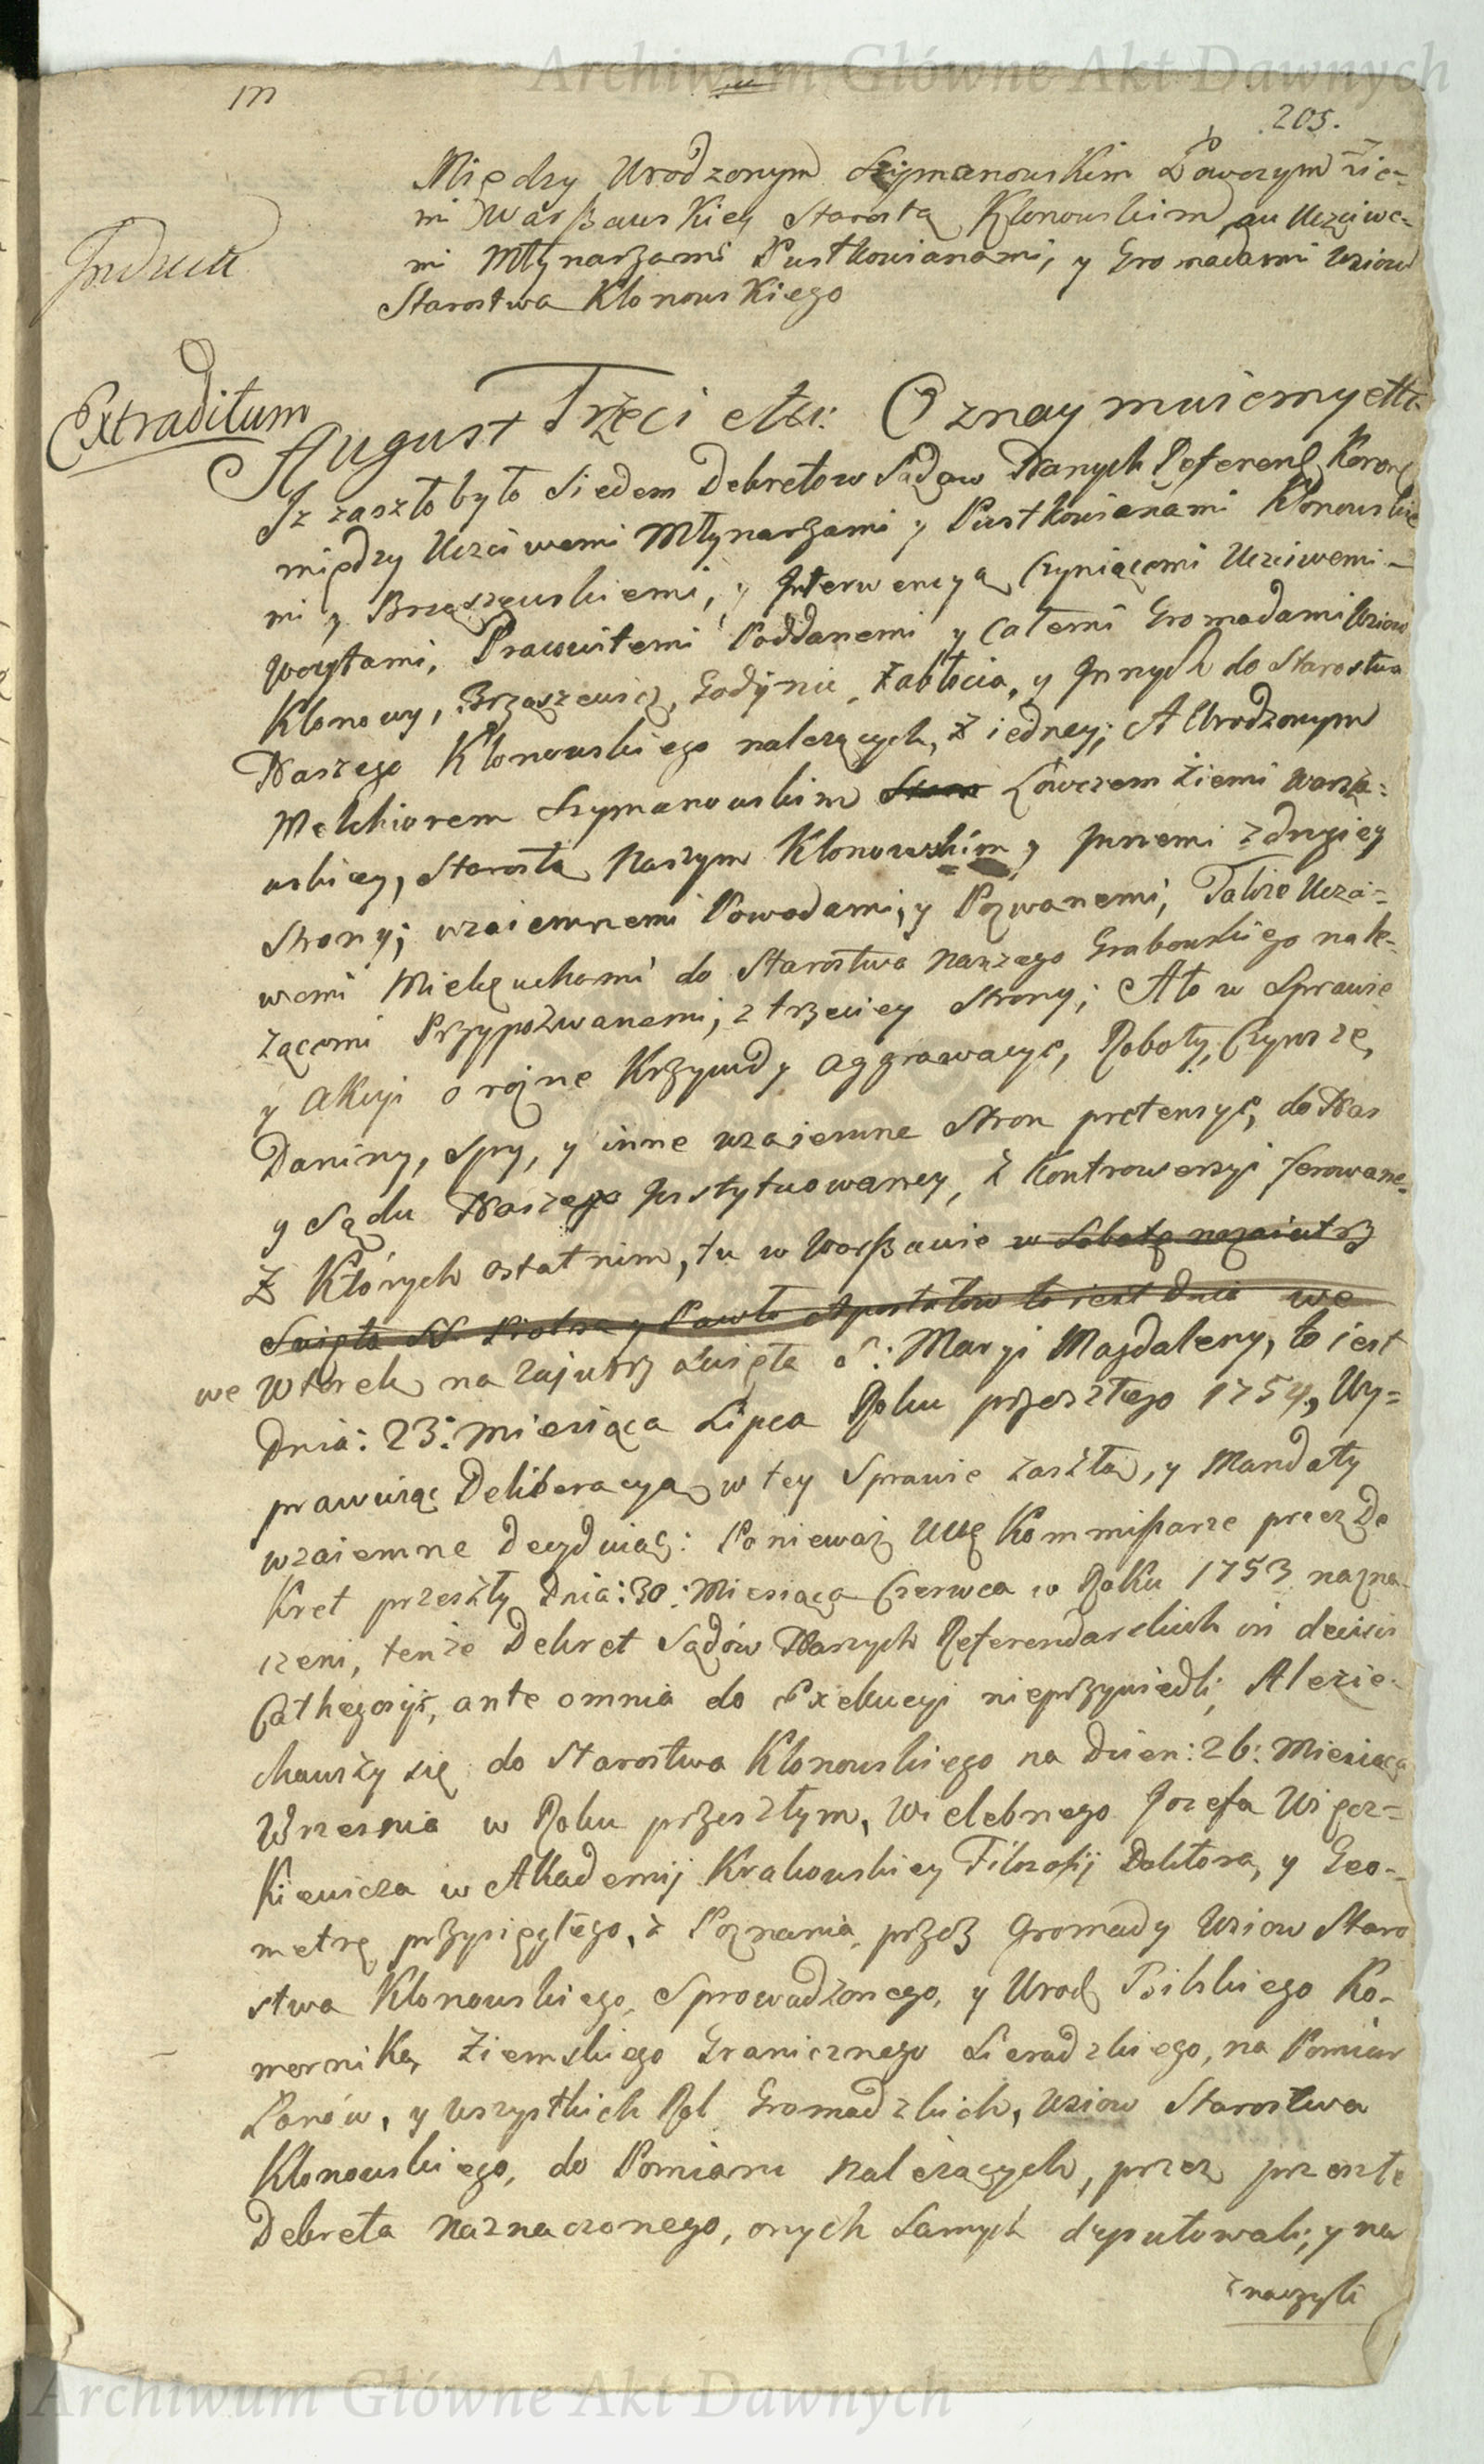 Archiwum Główne Akt Dawnych
m
205.
Między Urodzonym Szymanowskim Łowczym Zie-
mi Warszawskiey Starostą Klonowskim, au Uczciwe-
mi Młynarzami Pustkowianami, y Gromadami Wsiow
Starostwa Klonowskiego
Induct
Extraditum
August Trzeci etc: Oznaymuiemy etc.
Iz zaszło było Siedem Dekretow Sądow Naszych Referend Koron
między Uczciwemi Młynarzami y Pustkowianami Klonowskie
mi y Brząszewskiemi, y Interwencyą Czyniącemi Uczciwemi
Woytami, Pracowitemi Poddanemi y całemi Gromadami Wsiow
Klonowy, Brząszewic, Godynic, Zabłocia, y Innych do Starostwa
Naszego Klonowskiego nalezących, z iedney; A Urodzonym
Melchiorem Szymanowskim Łowczem Ziemi Warsza-
wskiey, Starostą Naszym Klonowskim y Innemi z drugiey
Strony; wzaiemnemi Powodami, y Pozwanemi, Takze Uczci-
wemi Mielęuchami do Starostwa Naszego Grabowskiego nale-
żącemi Przypozwanemi, z trzeciey Strony; A to w Sprawie
y Akcyi o rożne Krzywdy aggrawacye, Roboty, Czynsze,
Daniny, Spy, y inne wzaiemne Stron pretensye, do Nas
y Sądu Naszego Instytuowaney, z Kontrowersyi ferowane.
Z Których ostatnim, tu w Warszawie w Sobotę nazaiutrz
Święta SS. Piotra y Pawła Apostołow to iest Dnia we
we Wtorek nazajutrz Święta S: Maryi Magdaleny, to iest
Dnia: 23: Miesiąca Lipca Roku przeszłego 1754, Wy-
prawuiąc Deliberacyą w tey Sprawie zaszłą, y Mandaty
wzaiemne decyduiąc: Ponieważ Kommissarze przez De
Kret przeszły Dnia: 30: Miesiąca Czerwca w Roku 1753 nazna
czeni, tenze Dekret Sądów Naszych Referendarskich in decisis
Cathegoryis, ante omnia do Exekucyi nieprzywiedli, Ale zie-
chawszy się do Starostwa Klonowskiego na Dzień: 26: Miesiąca
Wrzesnia w Roku przeszłym, Wielebnego Jozefa Więcz-
Kiewicza w Akademij Krakowskiey Filozofij Doktora, y Geo-
metrę przysięgłego, z Poznania, przez Gromady Wsiow Staro
stwa Klonowskiego, Sprowadzonego, y Urod Bilskiego Ko-
mornika Ziemskiego Granicznego Sieradzkiego, na Pomiar
Łanów, y wszystkich Rol Gromadzkich, Wsiow Starostwa
Klonowskiego, do Pomiaru należących, przez przeszłe
Dekreta Naznaczonego, onych Samych deputowali, y na
znaczyli
Archiwum Główne Akt Dawnych